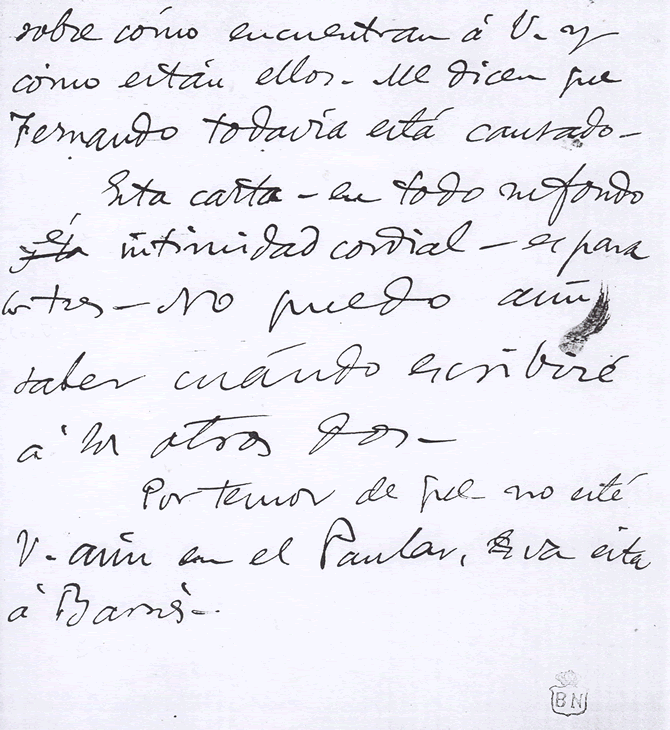 sobre cómo encuentran á V. y
cómo están ellos. Me dicen que
Fernando todavía está cansado—
Esta carta — en todo su fondo
é intimidad cordial — es para
los tres — No puedo aún
saber cuándo escribiré
á los otros dos—
Por temor de que no esté
V. aún en el Paular, va esta
á Barnés—
BN